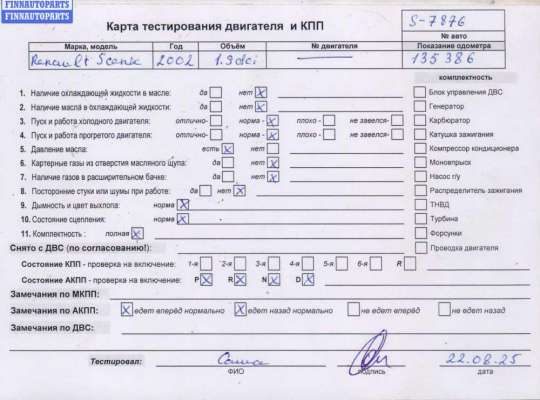 FINNAUTOPARTS
FINNAUTOPARTS
Карта тестирования двигателя и КПП
S-7876
№ авто
Марка, модель Год Объём № двигателя Показание одометра
Renault Scenic 2002 1.9dci 135 386
комплектность
1. Наличие охлаждающей жидкости в масле: да нет X
Блок управления ДВС
2. Наличие масла в охлаждающей жидкости: да нет X
Генератор
3. Пуск и работа холодного двигателя: отлично- норма - X плохо - не завелся-
Карбюратор
4. Пуск и работа прогретого двигателя: отлично- норма - X плохо - не завелся-
Катушка зажигания
5. Давление масла: есть X нет
Компрессор кондиционера
6. Картерные газы из отверстия масляного щупа: да нет X
Моновпрыск
7. Наличие газов в расширительном бачке: да нет X
Насос г/у
8. Посторонние стуки или шумы при работе: да нет X
Распределитель зажигания
9. Дымность и цвет выхлопа: норма X
ТНВД
10. Состояние сцепления: норма X
Турбина
11. Комплектность : полная X
Форсунки
Снято с ДВС (по согласованию!):
Проводка двигателя
Состояние КПП - проверка на включение: 1-я 2-я 3-я 4-я 5-я 6-я R
Состояние АКПП - проверка на включение: P X R X N X D X
Замечания по МКПП:
Замечания по АКПП: X едет вперёд нормально X едет назад нормально не едет вперёд не едет назад
Замечания по ДВС:
Тестировал: Саша 22.08.25
ФИО подпись дата